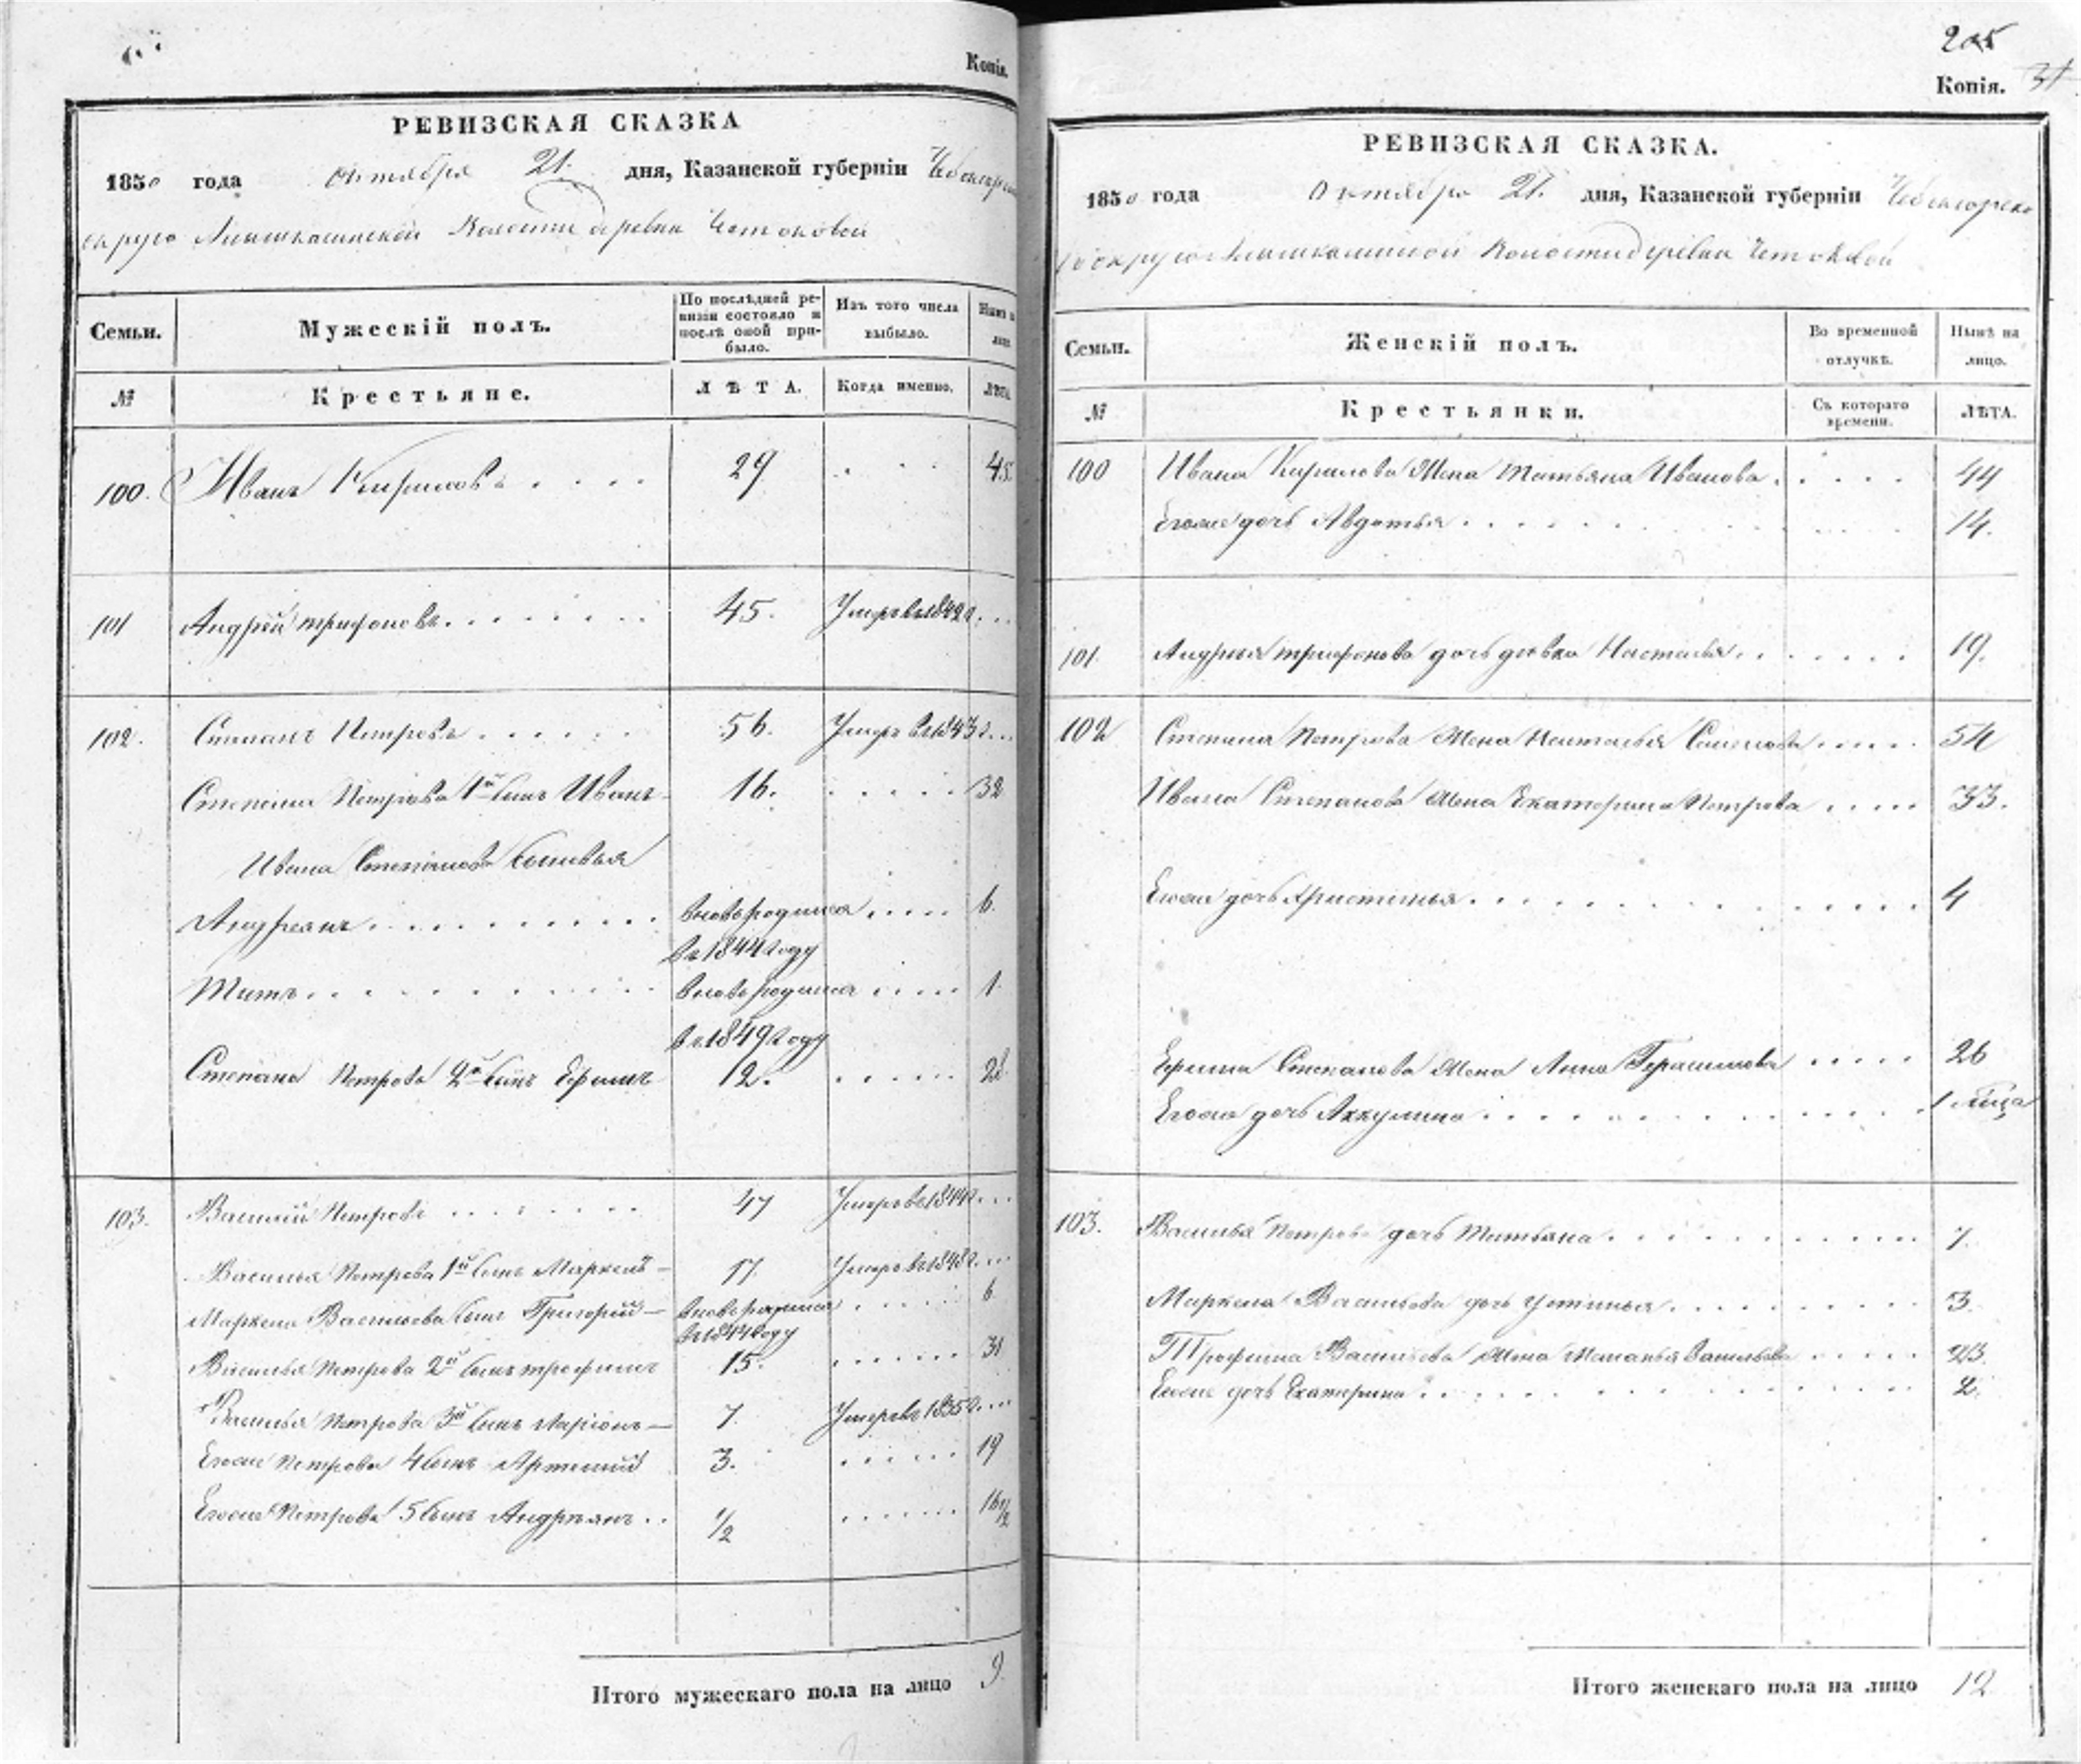 Копія.
РЕВИЗСКАЯ СКАЗКА
1850 года октября 21. дня, Казанской губерніи
округа волости деревни
Семьи.
Мужескій полъ.
По послѣдней ре-
визіи состояло и
послѣ оной при-
было.
Изъ того числа
выбыло.
Нынѣ на
лицо
№
Крестьяне.
ЛѢТА.
Когда именно.
ЛѢТА.
100. Иванъ Кириловъ 29 45.
101 Андрей трифоновъ 45. Умеръ въ 1842 г.
102. Степанъ Петровъ 56. Умеръ въ 1843 г.
Степана Петрова 1й сынъ Иванъ 16. 32
Ивана Степанова сыновья
Андреянъ вновь родился 6.
въ 1844 году
Титъ вновь родился 1.
въ 1849 году
Степана Петрова 2й сынъ Ефимъ 12. 28
103. Василий Петровъ 47 Умеръ въ
Василья Петрова 1й сынъ Маркелъ 17. Умеръ въ 1848 г.
Маркела Васильева сынъ Григорий вновь родился 6
въ 1844 году
Василья Петрова 2й сынъ трофимъ 15. 31
Василья Петрова 3й сынъ Ларіонъ 7. Умеръ въ 1835 г.
Егоже Петрова 4 сынъ Артемий 3. 19
Егоже Петрова 5 сынъ Андреянъ 1/2 16 1/2
Итого мужескаго пола на лицо 9.
205
Копія. 31
РЕВИЗСКАЯ СКАЗКА.
1850 года Октября 21. дня, Казанской губерніи Чебоксарска
го округа волости деревни
Семьи.
Женскій полъ.
Во временной
отлучкѣ.
Нынѣ на
лицо.
№
Крестьянки.
Съ котораго
времени.
ЛѢТА.
100 Ивана Кирилова Жена Татьяна Иванова 44
Егоже дочь Авдотья 14.
101. Андрея трифонова дочь девка Настасья 19.
102 Степана Петрова Жена Настасья Семенова 54
Ивана Степанова Жена Екатерина Петрова 33.
Егоже дочь Христинья 4
Ефима Степанова Жена Анна Герасимова 26
Егоже дочь Аккулина
103. Василья Петрова дочь Татьяна 7.
Маркела Васильева дочь Устинья 3.
Трофима Васильева Жена Маланья Савельева 23.
Егоже дочь Екатерина 2.
Итого женскаго пола на лицо 12